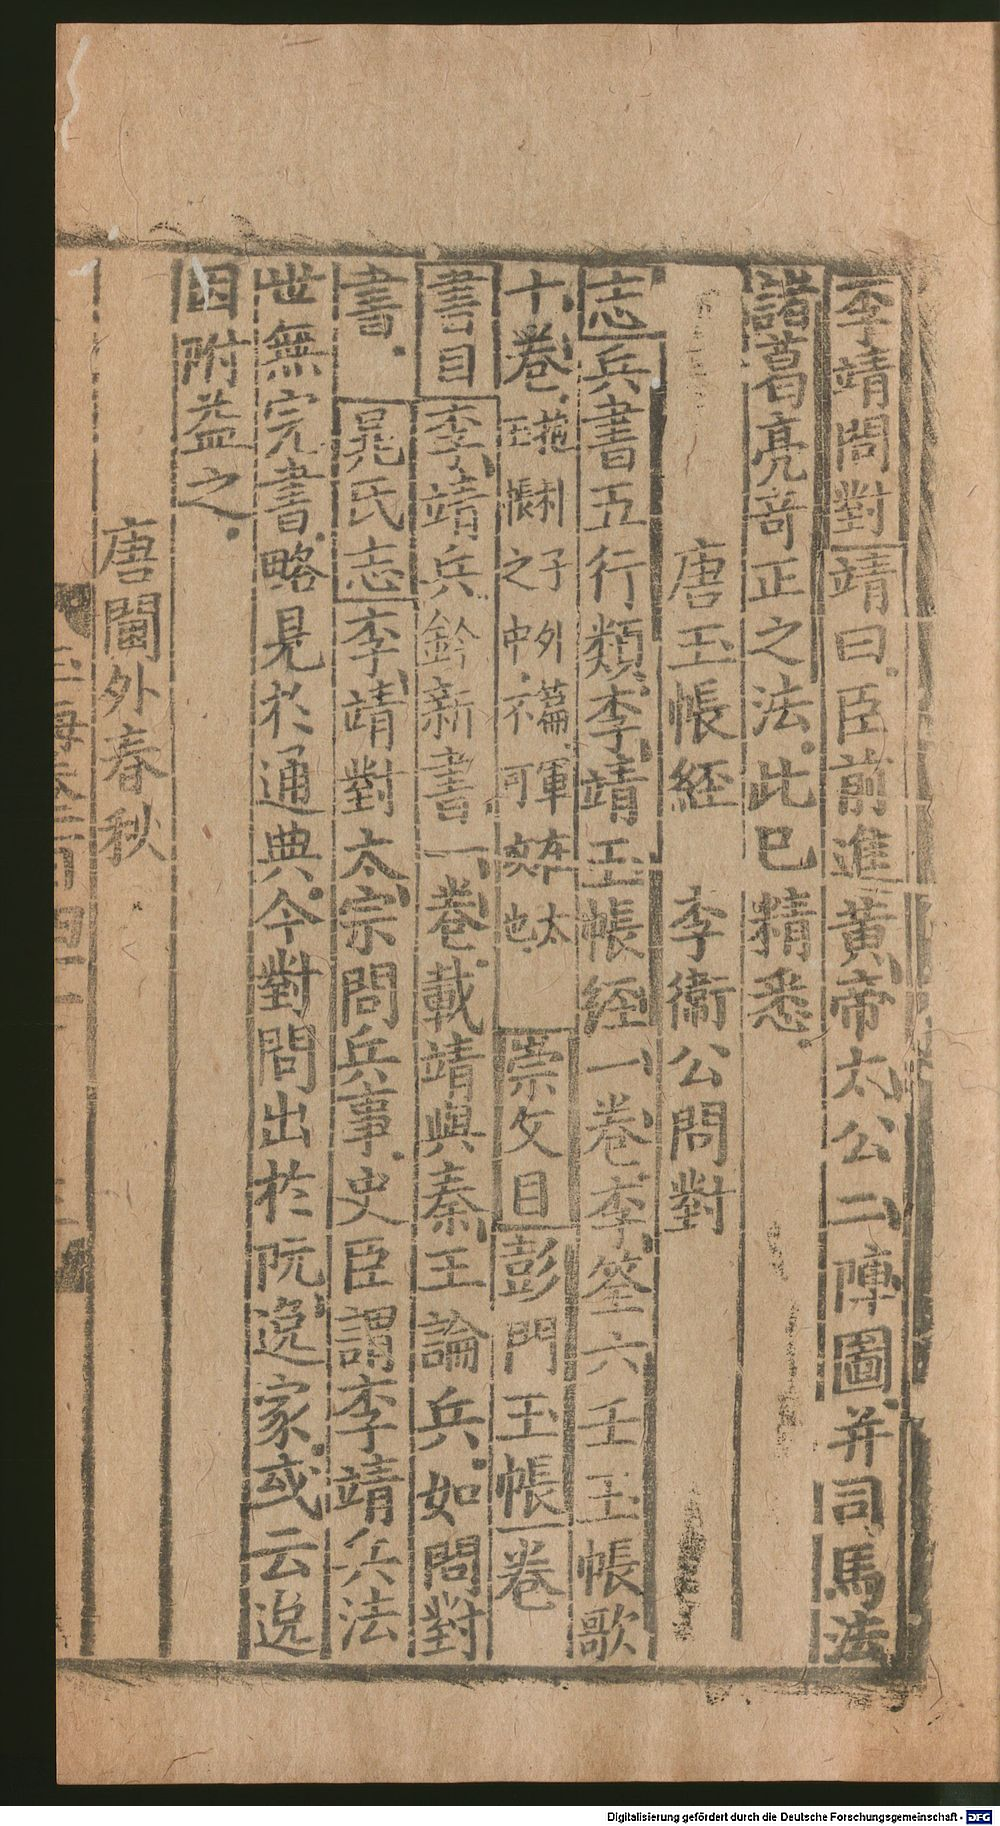 李靖問對靖曰臣前進黃帝太公二陣圖并司馬法
諸葛亮竒正之法此已精悉
唐玉帳經　李衞公問對
志兵書五行類李靖玉帳經一卷李筌六壬玉帳歌
十卷
抱朴子外篇軍在太
玉帳之中不可攻也
崇文目彭門玉帳一卷
書目李靖兵鈐新書一卷載靖與秦王論兵如問對
書晁氏志李靖對太宗問兵事史臣謂李靖兵法
世無完書略見於通典今對問出於阮逸家或云逸
因附益之
唐閫外春秋
Digitalisierung gefördert durch die Deutsche Forschungsgemeinschaft - DFG